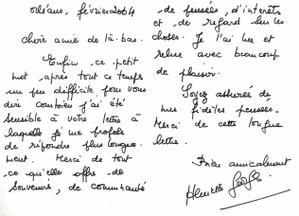 Orléans, février 2004
Chère amie de là-bas.
Enfin, ce petit
mot, après tout ce temps
un peu difficile. Pour vous
dire combien j'ai été
sensible à votre lettre à
laquelle je me propose
de répondre plus longue-
ment. Merci de tout
ce qu'elle offre de
souvenirs, de communauté
de pensées, d'intérêts
et de regard sur les
choses. Je l'ai lue et
relue avec beaucoup
de plaisir.
Soyez assurée de
mes fidèles pensées.
Merci de cette longue
lettre.
Bien amicalement